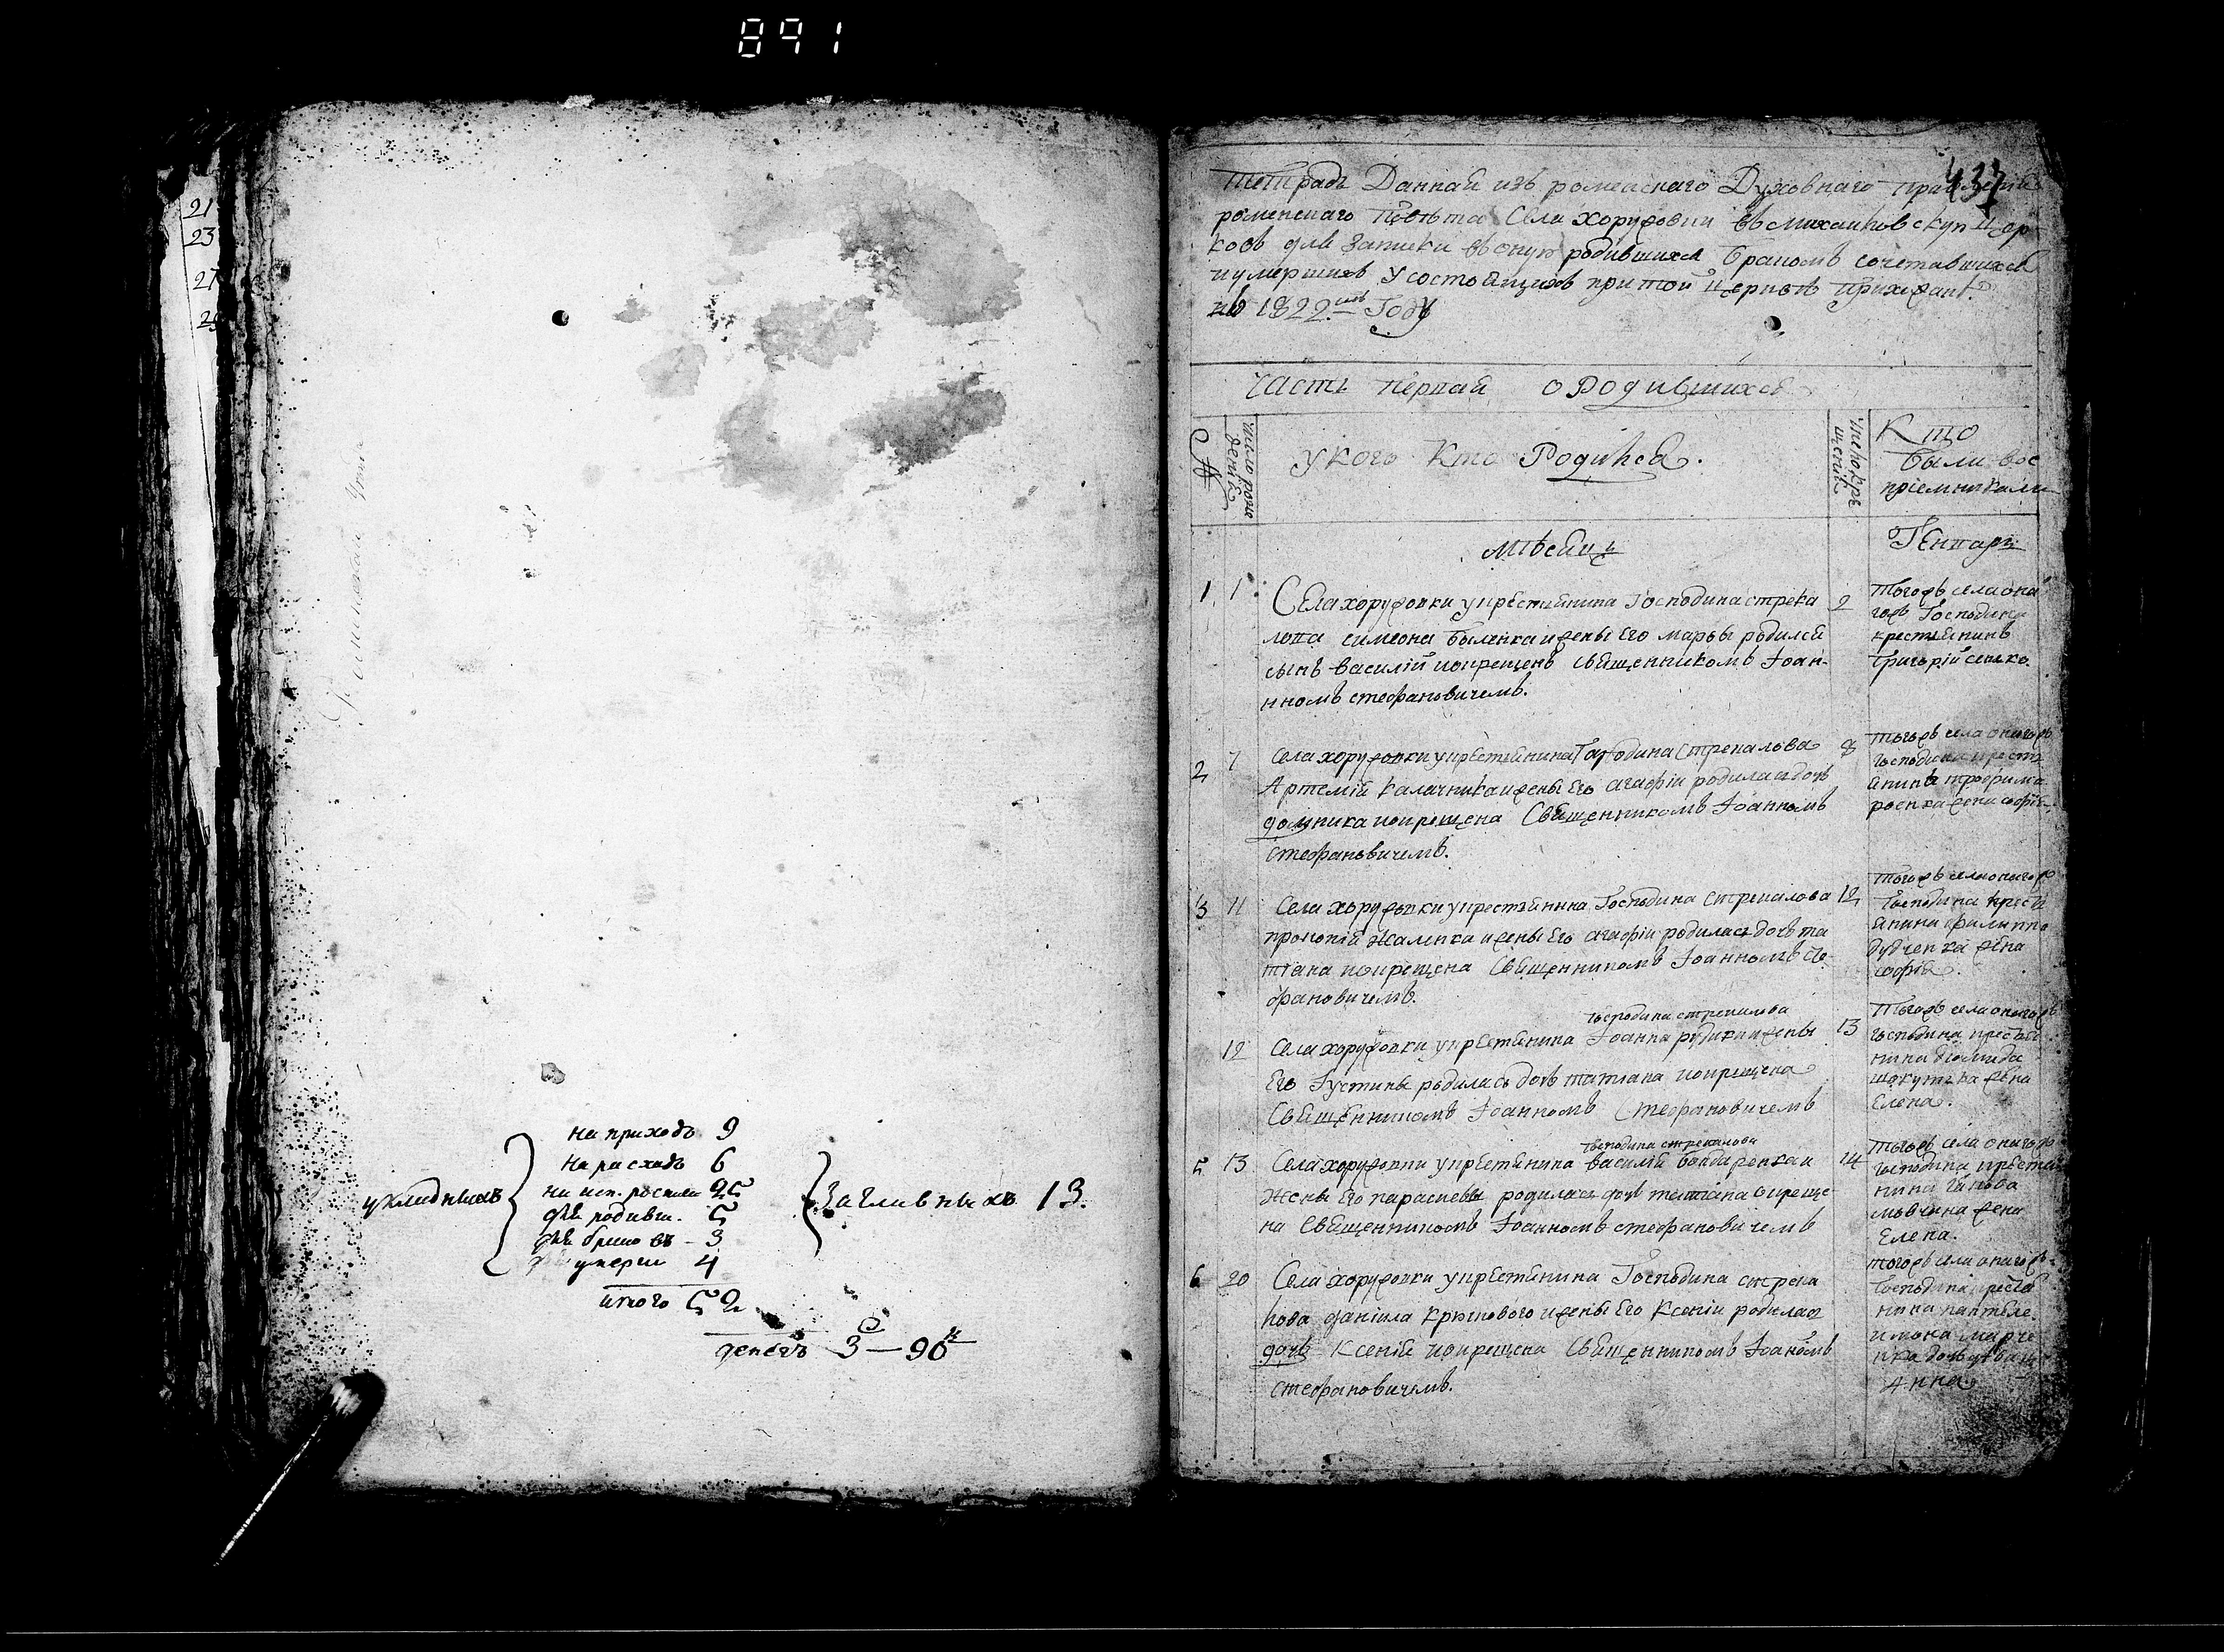 891
21
23
27
на приходъ 9
на расходъ 6
на исп. роспис 25
для родивш. 5
для браковъ - 3
умерш 4
итого 52
денегъ 3 — 90 к
13.
437
тетрадь Данная изъ роменскаго Духовнаго правления
роменскаго повѣта Села хоружовки въ михаиловскую цер
ковь для записки въ оную родившихся бракомъ сочетавшихся
и умершихъ у состоящихъ при той церквѣ прихожан.
на 1822 Году
Часть первая о Родившихся
№
число рож
дения
у кого кто Родился.
число кре
щения
Кто
были вос
приемниками
Мѣсяцъ
Генварь
1. 1
Села хоружовки у крестянина Господина стрека
лова симеона Быленка и жены Его марфы родился
сынъ василий и окрещенъ священникомъ Иоан-
нномъ стефановичемъ.
2
тогожъ села она
гожъ Господина
крестянинъ
Григорий сенько.
2 7
Села хоружовки у крестянина Господина Стрекалова
Артемия калачника и жены Его агафии родилась дочь
домника и окрещена Священникомъ Иоанномъ
стефановичемъ.
8
тогожъ села онагожъ
господина крест
янина трофима
жена софия
3 11
Села хоружовки у крестянина Господина стрекалова
прокопия Жаленка и жены Его агафии родилась дочь та
тиана и окрещена Священникомъ Иоанномъ сте-
фановичемъ.
12
тогожъ села онагожъ
Господина крест
янина филиппа
дудченка жена
софия.
12
господина стрекалова
Села хоружовки у крестянина Иоанна рудика и жены
Его Густины родилась дочь татиана и окрещена
Священникомъ Иоанномъ Стефановичемъ
13
тогожъ села онагожъ
господина крестья
нина диомида
жена
Елена.
5 13
господина стрекалова
Села хоружовки у крестянина василия бондаренка и
жены Его параскевы родилась дочь татиана окреще-
на Священникомъ Иоанномъ стефановичемъ
14
тогожъ села онагожъ
господина крестя
нина
жена
Елена.
6 20
Села хоружовки у крестянина Господина стрека
лова даниила крыкового и жены Его Ксении родилась
дочь Ксения и окрещена Священникомъ Иоанномъ
стефановичемъ.
тогожъ села онагожъ
Господина крестя
нина пантеле
имона марче
нка дочь
Анна